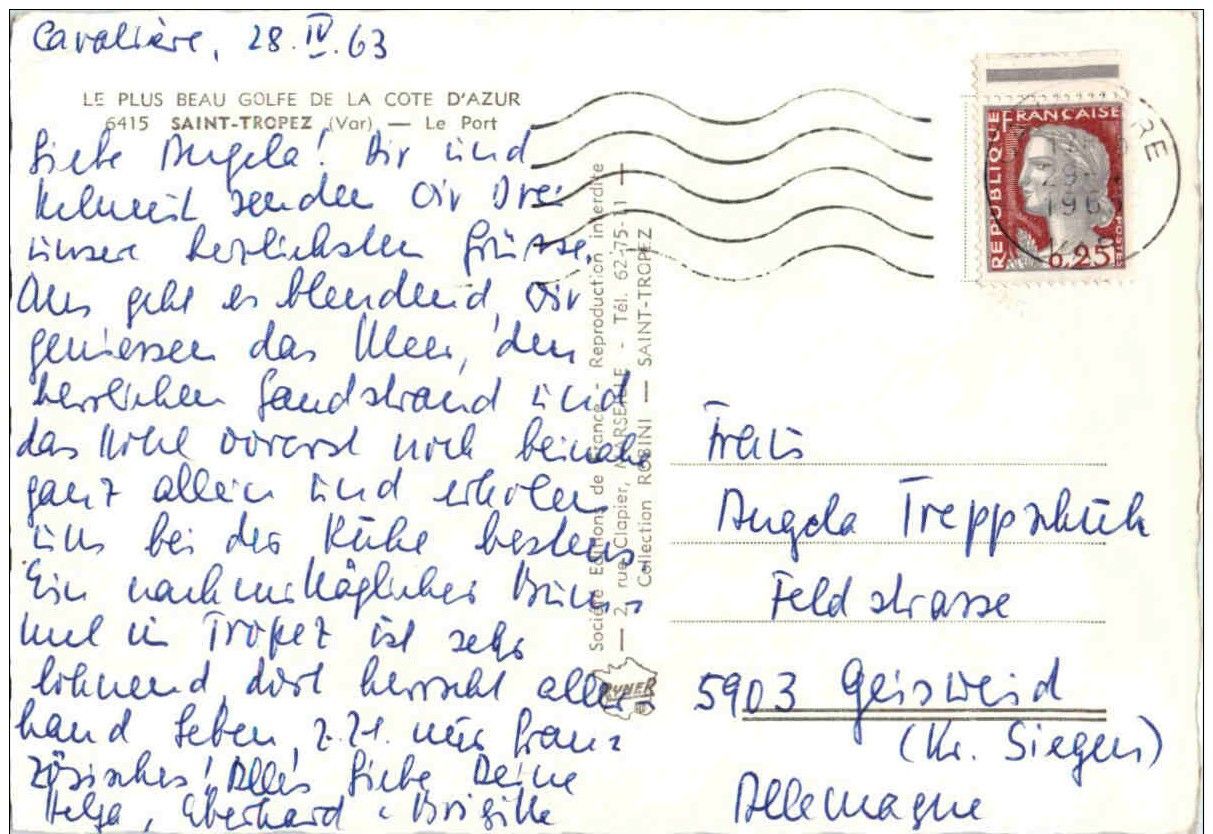 Cavalière, 28.IV.63
LE PLUS BEAU GOLFE DE LA COTE D'AZUR
6415 SAINT-TROPEZ (Var) — Le Port
Liebe Angela! Dir und
Helmut senden wir Drei
unsere herzlichsten Grüsse.
Uns geht es blendend, wir
geniessen das Meer, den
herrlichen Sandstrand und
das Hotel vorerst noch beinahe
ganz allein und erholen
uns bei der Ruhe bestens.
Ein nachmittäglicher Bum-
mel in Tropez ist sehr
lohnend, dort herrscht aller-
hand Leben, z.Zt. nur fran-
zösisches! Alles Liebe Deine
Helga, Eberhard & Brigitte
Société Editions de France - Reproduction interdite
— 2, rue Clapier, MARSEILLE - Tél. 62-75-11 —
Collection ROBINI — SAINT-TROPEZ
RYNER
REPUBLIQUE FRANÇAISE
POSTES
0,25
196
Frau
Angela Treppschuh
Feldstrasse
5903 Geisweid
(Kr. Siegen)
Allemagne